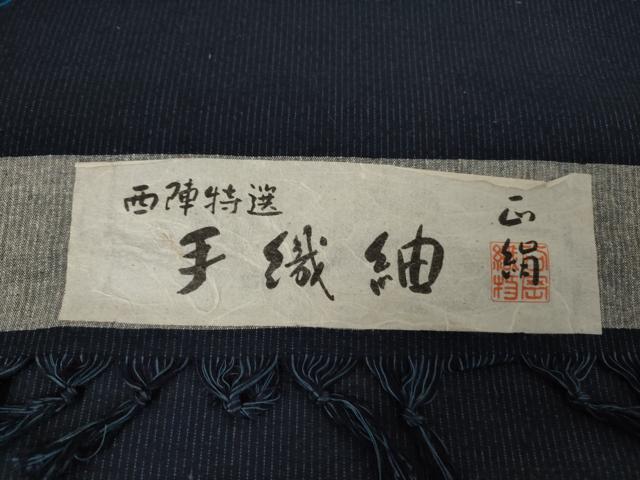 西陣特選
手織紬
正絹